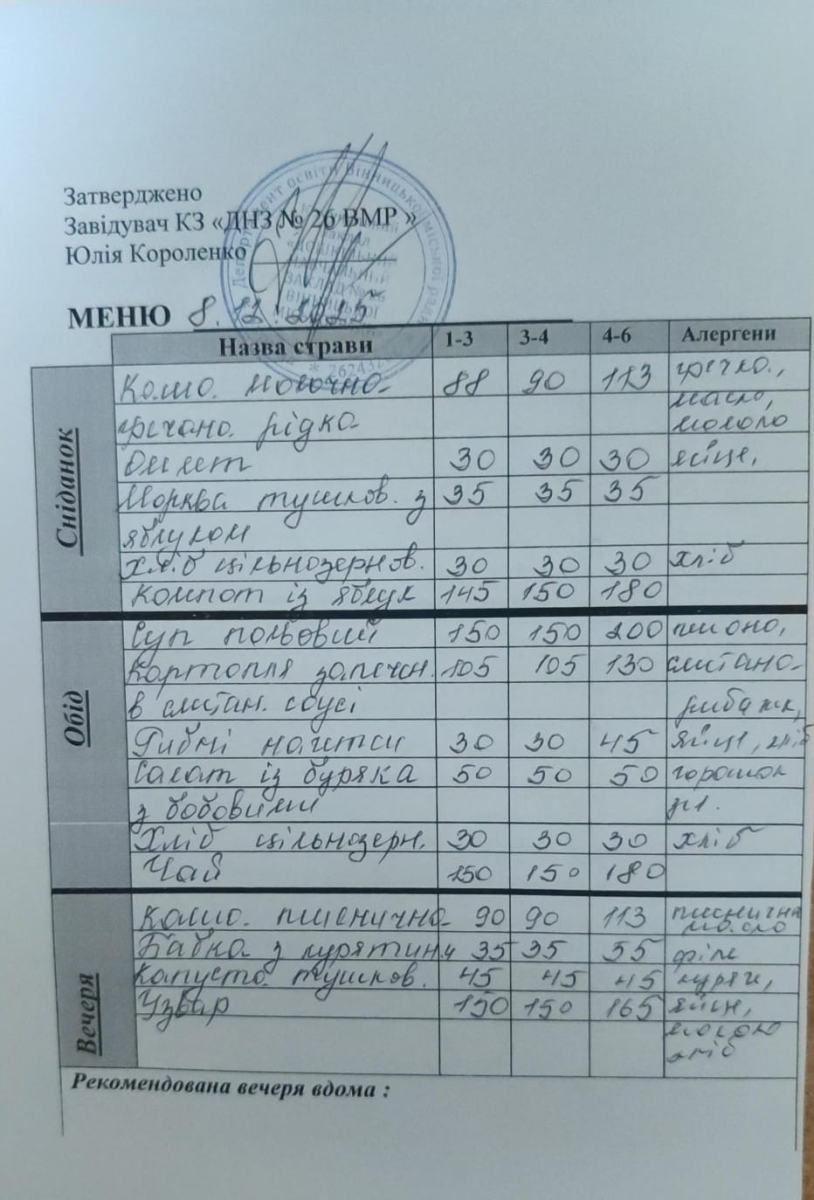 Затверджено
Завідувач КЗ «ДНЗ № 26 ВМР »
Юлія Короленко
Департамент освіти Вінницької міської ради
МЕНЮ 8.12.2025
Назва страви 1-3 3-4 4-6 Алергени
Сніданок
Каша молочна 88 90 113 гречка,
масло,
гречана рідка молоко
Омлет 30 30 30 яйце,
Морква тушков. з 35 35 35
яблуком
Хліб цільнозернов. 30 30 30 хліб
Компот із яблук 145 150 180
Обід
Суп польовий 150 150 200 пшоно,
Картопля запечен. 105 105 130 сметана
в сметан. соусі риба
Рибні нагетси 30 30 45 яйце, хліб
Салат із буряка 50 50 50 горошок
з бобовими
Хліб цільнозерн. 30 30 30 хліб
Чай 150 150 180
Вечеря
Каша пшенична 90 90 113 пшенична
масло
Бабка з курятини 35 35 55 філе
Капуста тушков. 45 45 45 куряч,
Узвар 150 150 165 яйце,
молоко
хліб
Рекомендована вечеря вдома :